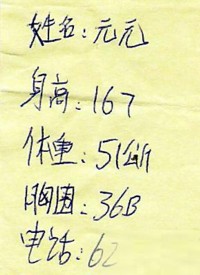 姓名:元元
身高:167
体重:51公斤
胸围:36B
电话:62